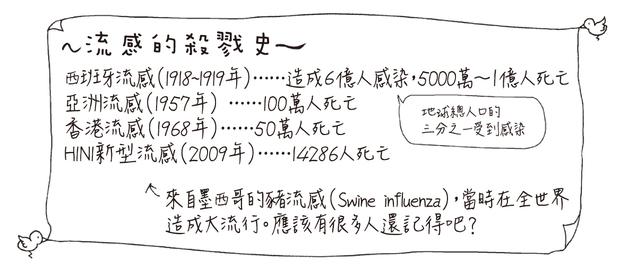 ～流感的殺戮史～
西班牙流感(1918~1919年)……造成6億人感染，5000萬～1億人死亡
亞洲流感(1957年)……100萬人死亡
地球總人口的
三分之一受到感染
香港流感(1968年)……50萬人死亡
H1N1新型流感(2009年)……14286人死亡
來自墨西哥的豬流感(Swine influenza)，當時在全世界
造成大流行。應該有很多人還記得吧?